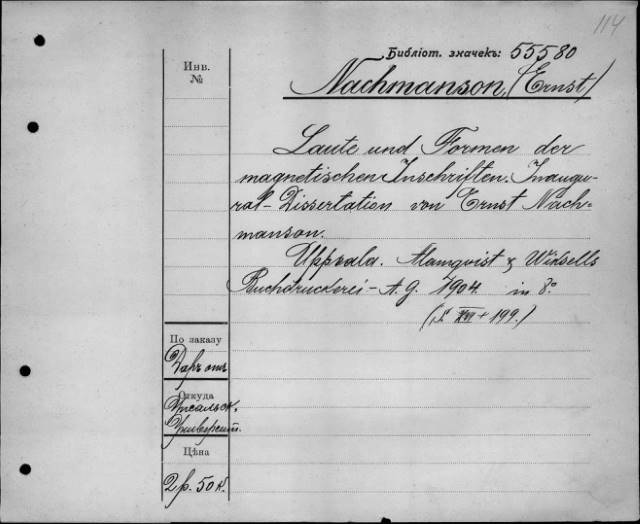 114
Библіот. значекъ: 55580
Инв.
№
Nachmanson, (Ernst)
Laute und Formen der
magnetischen Inschriften. Inaugu-
ral-Dissertation von Ernst Nach-
manson.
Uppsala. Almqvist & Wiksells
Buchdruckerei-A. G. 1904 in 8º
XVI + 199.)
По заказу
Даръ отъ
Откуда
Упсальск.
Университ.
Цѣна
2 р. 50 к.